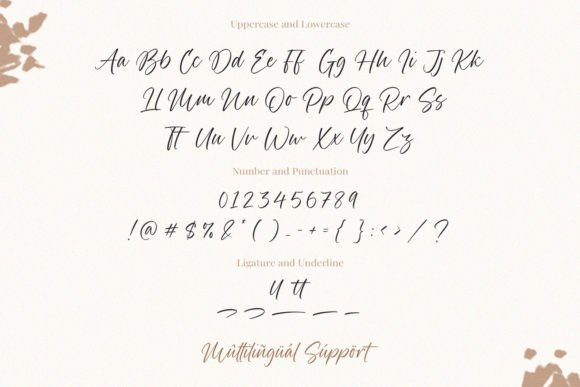 Uppercase and Lowercase
Aa Bb Cc Dd Ee Ff Gg Hh Ii Jj Kk
Ll Mm Nn Oo Pp Qq Rr Ss
Tt Uu Vv Ww Xx Yy Zz
Number and Punctuation
0123456789
!@#$%&*()_-+={}:<>/?
Ligature and Underline
ll tt
Múltilingüál Súppört